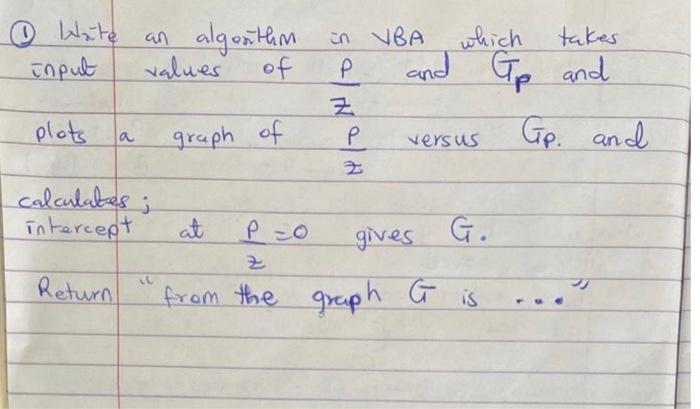 ① Write an algorithm in VBA which takes
input values of P/Z and Gp and
plots a graph of P/Z versus Gp. and
calculates;
intercept at P/Z =0 gives G.
Return "from the graph G is ..."